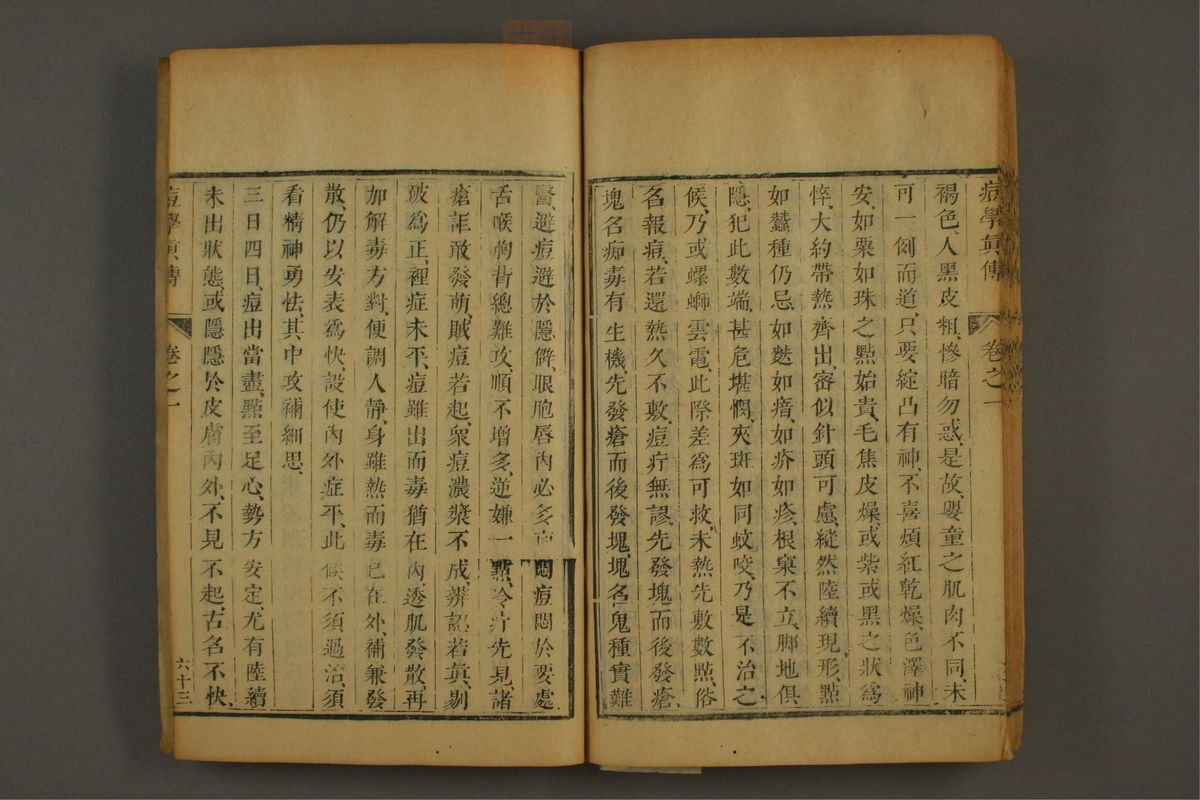 痘學真傳 卷之一
褐色、人黑皮粗、慘暗勿惑、是故、嬰童之肌肉不同、未
可一例而道、只要綻凸有神、不喜煩紅乾燥、色澤神
安、如粟如珠之點始貴、毛焦皮燥、或紫或黑之狀爲
悴、大約帶熱齊出、密似針頭可慮、縱然陸續現形、點
如蠶種仍忌、如麩如瘖、如疥如疹、根窠不立、脚地俱
隱、犯此數端、甚危堪憫、夾斑如同蚊咬、乃是不治之
候、乃或螺螄雲電、此際差爲可救、未熱先敷數點、俗
名報痘、若還熱久不敷、痘疔無謬、先發塊而後發瘡、
塊名痴毒有生機、先發瘡而後發塊、塊名鬼種實難
醫、避痘避於隱僻、眼胞唇內必多 悶痘悶於要處
舌喉胸背總難攻、順不增多、逆嫌一點、冷疔先見、諸
瘡誰敢發萌、賊痘若起、衆痘濃漿不成、辨認若真、剔
破爲正、裡症未平、痘雖出而毒猶在內、透肌發散、再
加解毒方對、便調人靜、身雖熱而毒已在外、補兼發
散、仍以安表爲快、設使內外症平、此候不須過治、須
看精神勇怯、其中攻補細思、
三日四日、痘出當盡、點至足心、勢方安定、尤有陸續
未出狀態、或隱隱於皮膚內外、不見不起、古名不快、
痘學真傳 卷之一 六十三